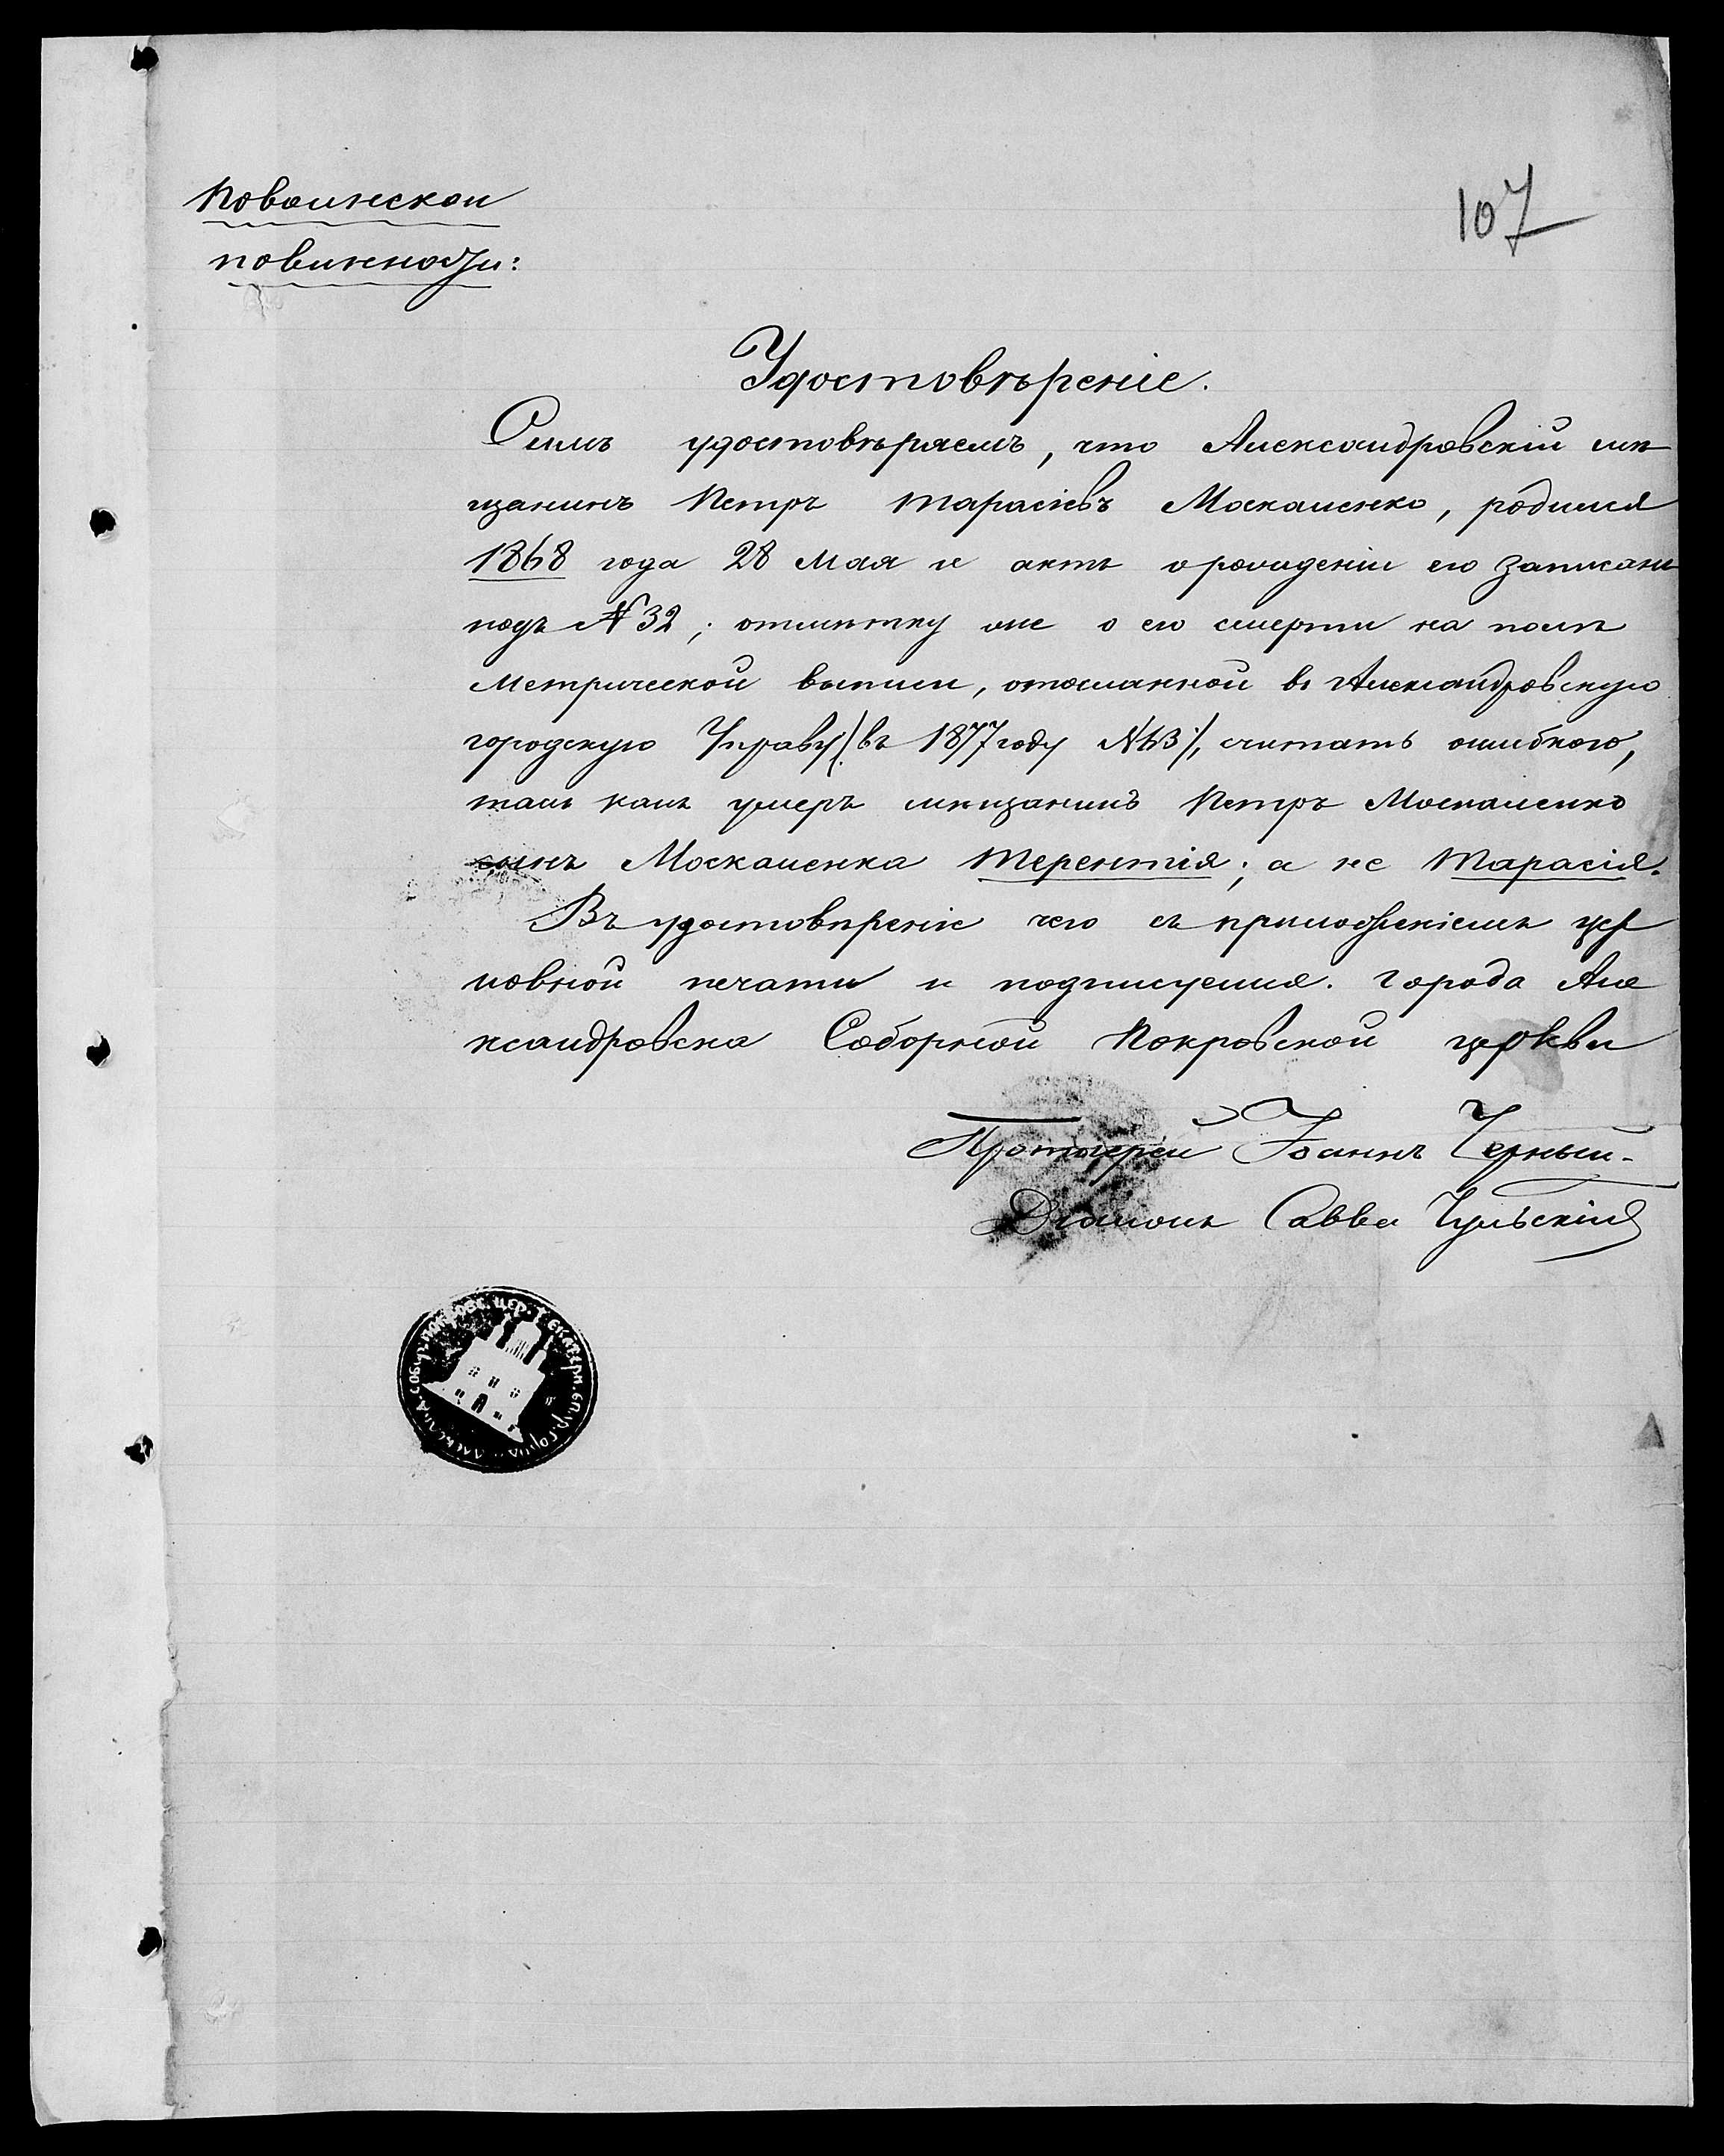 По воинской
107
повинности:
Удостовѣреніе.
Симъ удостовѣряемъ, что Александровскій мѣ
щанинъ Петръ Тарасіевъ Москаленко, родился
1868 года 28 Мая и актъ о рожденіи его записанъ
подъ № 32; отмѣтку же о его смерти на полѣ
Метрической выписи, отосланной въ Александровскую
городскую Управу (въ 1877 году № 43), считать ошибкою,
такъ какъ умеръ мѣщанинъ Петръ Москаленко
сынъ Москаленка Терентія; а не Тарасія.
Въ удостовѣреніе чего съ приложеніемъ цер
ковной печати и подписуемся. Города Але
ксандровска Соборной Покровской церкви
Протоіерей Іоаннъ Черный.
Діаконъ Савва Чульскій